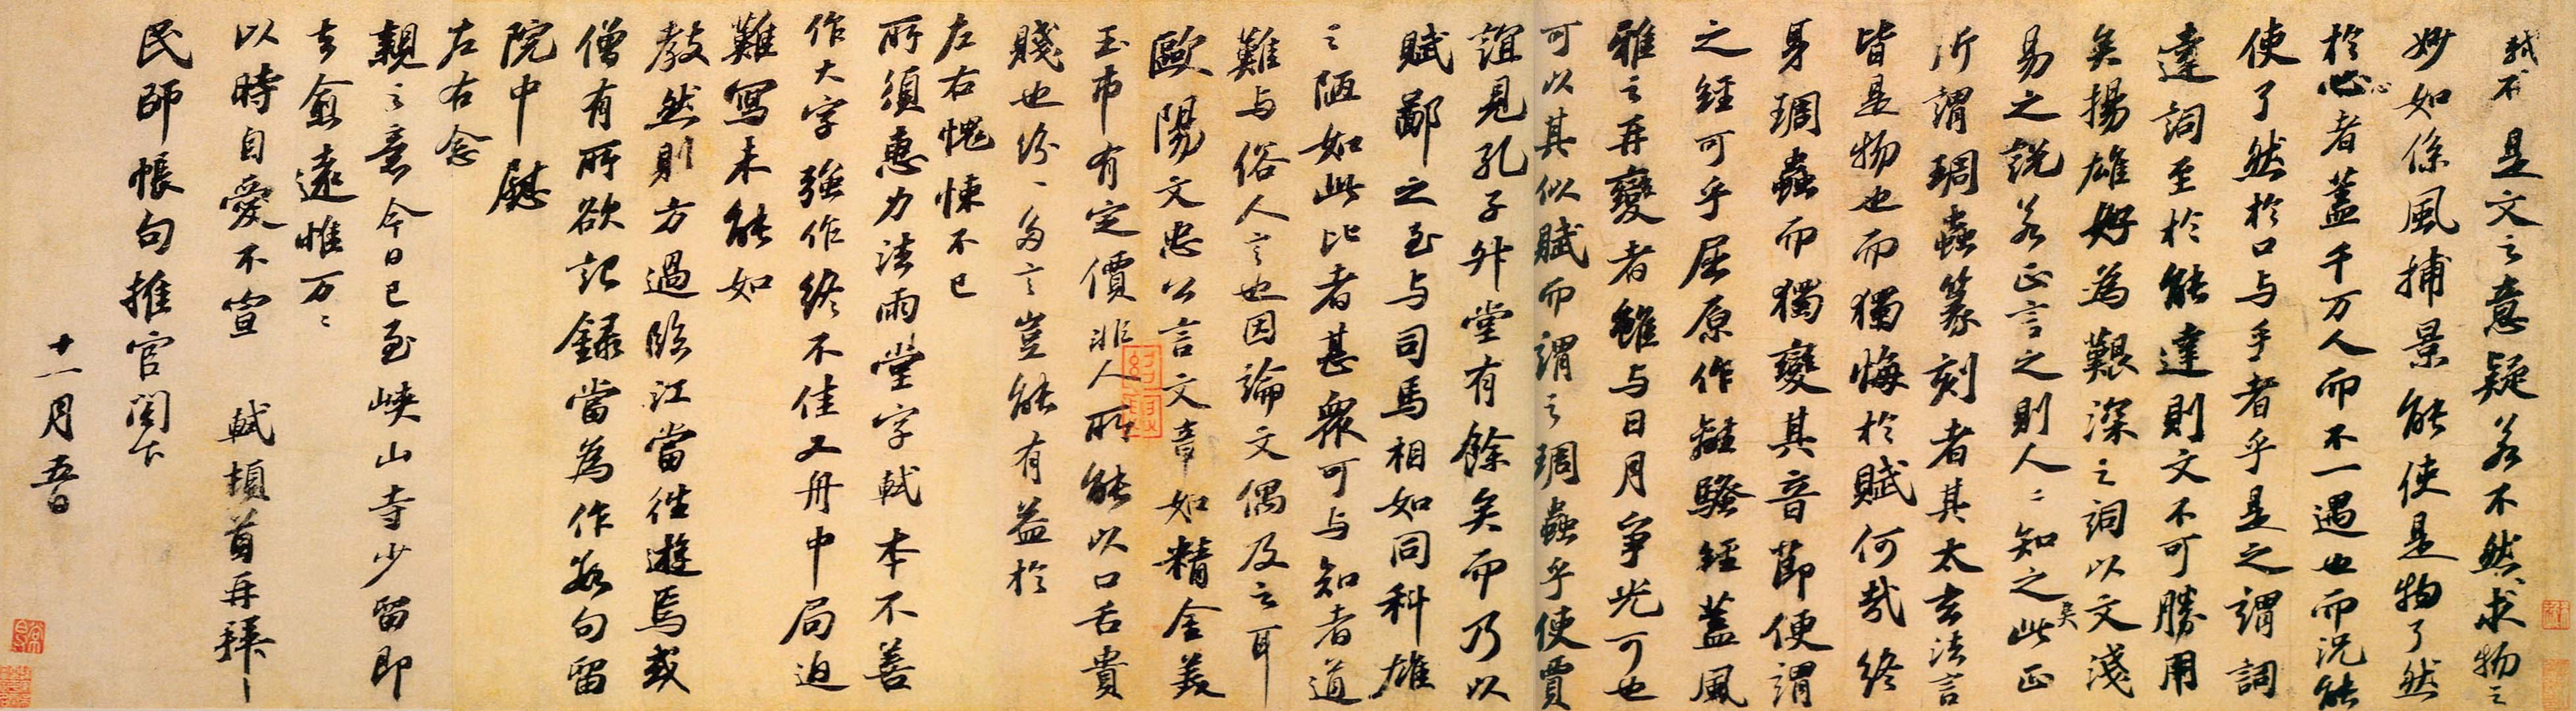 是文之意疑若不然求物之
妙如係風捕景能使是物了然
於心者蓋千万人而不一遇也而況能
使了然於口与手者乎是之謂詞
達詞至於能達則文不可勝用
矣揚雄好為艱深之詞以文淺
易之說若正言之則人〻知之矣此正
所謂琱蟲篆刻者其太玄法言
皆是物也而獨悔於賦何哉終
身琱蟲而獨變其音節便謂
之經可乎屈原作離騷經蓋風
雅之再變者雖与日月爭光可也
可以其似賦而謂之琱蟲乎使賈
誼見孔子升堂有餘矣而乃以
賦鄙之至与司馬相如同科雄
之陋如此比者甚眾可与知者道
難与俗人言也因論文偶及之耳
歐陽文忠公言文章如精金美
玉市有定價非人所能以口舌貴
賤也紛〻多言豈能有益於
左右愧悚不已
所須惠力法雨堂字軾本不善
作大字強作終不佳又舟中局迫
難寫未能如
教然則方過臨江當往遊焉或
僧有所欲記錄當為作數句留
院中慰
左右念
親之意今日已至峽山寺少留即
去愈遠惟万〻
以時自愛不宣 軾頓首再拜
民師帳句推官閣下
十一月五日